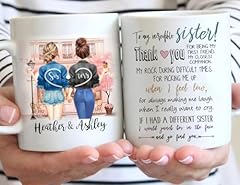 Heather & Ashley
To my wonderful sister!
Thank you
FOR BEING MY
FIRST FRIEND,
MY CLOSEST
COMPANION,
MY ROCK DURING DIFFICULT TIMES
FOR PICKING ME UP
when I feel low,
for always making me laugh
when I really want to cry.
IF I HAD A DIFFERENT SISTER
I would punch her in the face
and go find you...